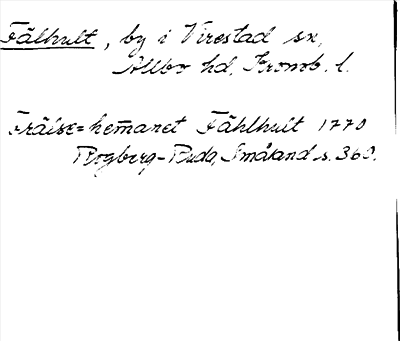 Fälhult, by i Virestad sn,
Allbo hd, Kronob. l.
Frälse=hem̄anet Fählhult 1770
Rogberg-Ruda, Småland s. 360.